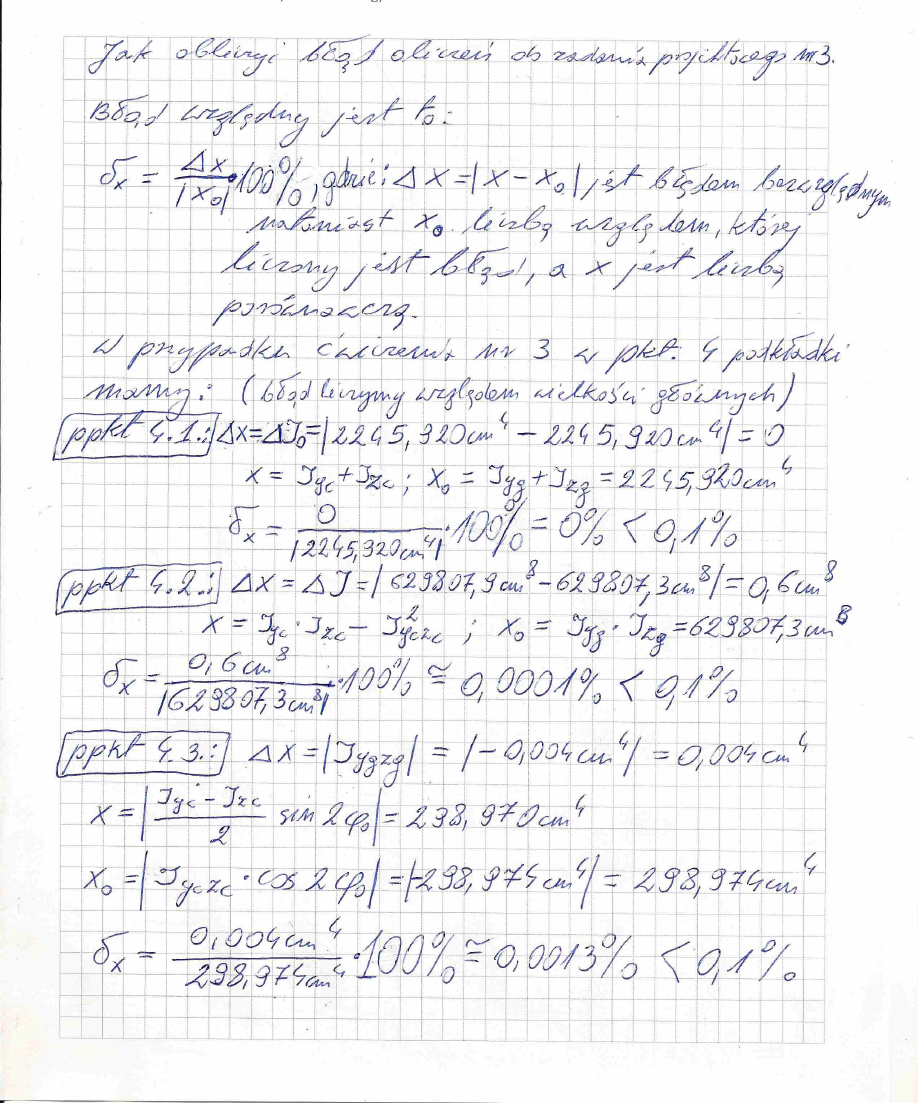 Jak obliczyć błąd obliczeń do zadania projektowego nr 3.
Błąd względny jest to:
δx = Δx / |x₀| · 100%, gdzie: Δx = |x − x₀| jest błędem bezwzględnym
natomiast x₀ liczbą względem, której
liczony jest błąd, a x jest liczbą
porównawczą.
W przypadku ćwiczenia nr 3 w pkt. 4 podkładki
mamy: (błąd liczymy względem wielkości głównych)
ppkt 4.1.: Δx = ΔJ₀ = |2245,920cm⁴ − 2245,920cm⁴| = 0
x = Jyc + Jzc ; x₀ = Jyg + Jzg = 2245,920cm⁴
δx = 0 / |2245,920cm⁴| · 100% = 0% < 0,1%
ppkt 4.2.: Δx = ΔJ = |629807,9cm⁸ − 629807,3cm⁸| = 0,6cm⁸
x = Jyc · Jzc − J²yczc ; x₀ = Jyg · Jzg = 629807,3cm⁸
δx = 0,6cm⁸ / |629807,3cm⁸| · 100% ≅ 0,0001% < 0,1%
ppkt 4.3.: Δx = |Jygzg| = |−0,004cm⁴| = 0,004cm⁴
x = |(Jyc − Jzc) / 2 sin 2φ₀| = 298,970cm⁴
x₀ = |Jyczc · cos 2φ₀| = |−298,974cm⁴| = 298,974cm⁴
δx = 0,004cm⁴ / 298,974cm⁴ · 100% ≅ 0,0013% < 0,1%